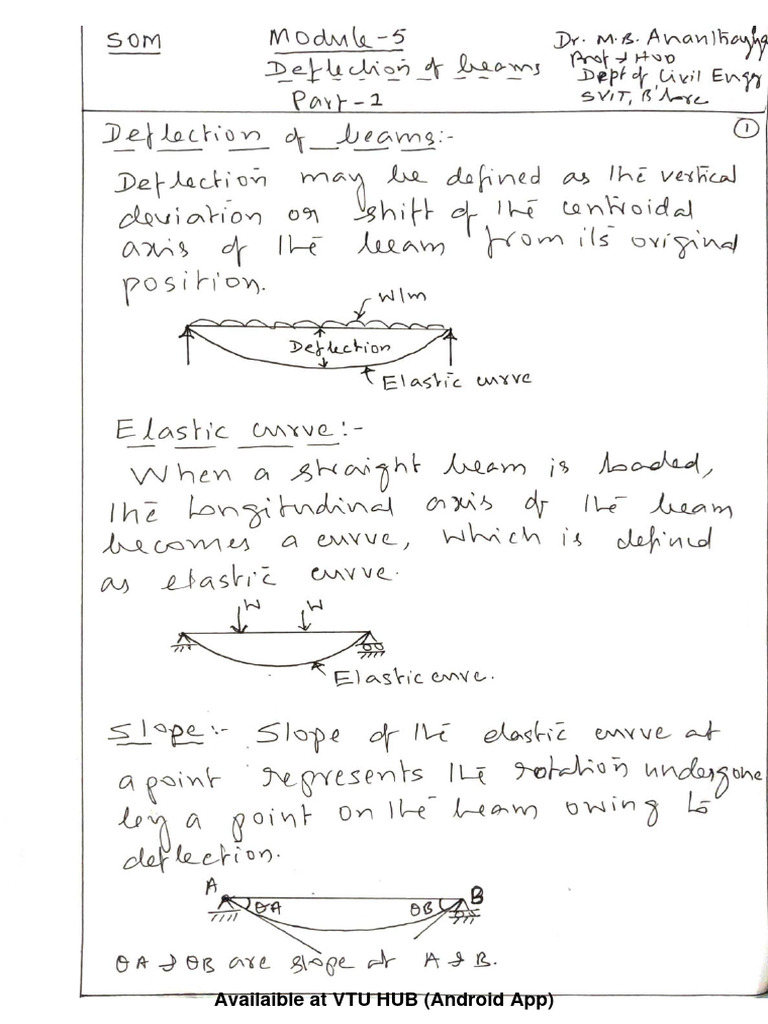 SOM
Module-5
Deflection of beams
Part-1
Dr. M.B. Ananthayya
Prof & HOD
Dept of Civil Engg
SVIT, B'lore
1
Deflection of beams:-
Deflection may be defined as the vertical
deviation or shift of the centroidal
axis of the beam from its original
position.
W/m
Deflection
Elastic curve
Elastic curve:-
When a straight beam is loaded,
the longitudinal axis of the beam
becomes a curve, which is defined
as elastic curve.
W W
Elastic curve.
Slope:- Slope of the elastic curve at
a point represents the rotation undergone
by a point on the beam owing to
deflection.
A B
θA θB
θA & θB are slope at A & B.
Availaible at VTU HUB (Android App)